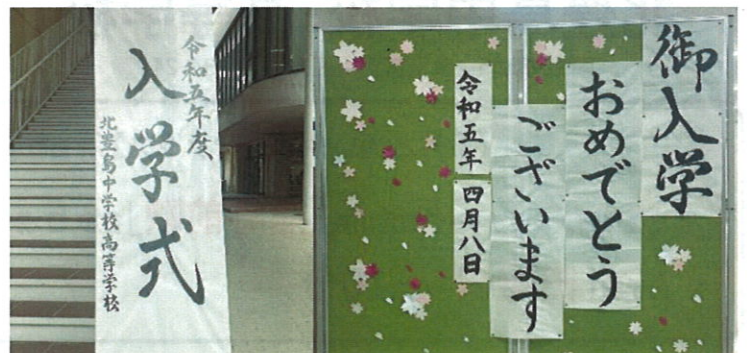 令和五年度
入学式
北豊島中学校高等学校
御入学
おめでとう
ございます
令和五年 四月八日